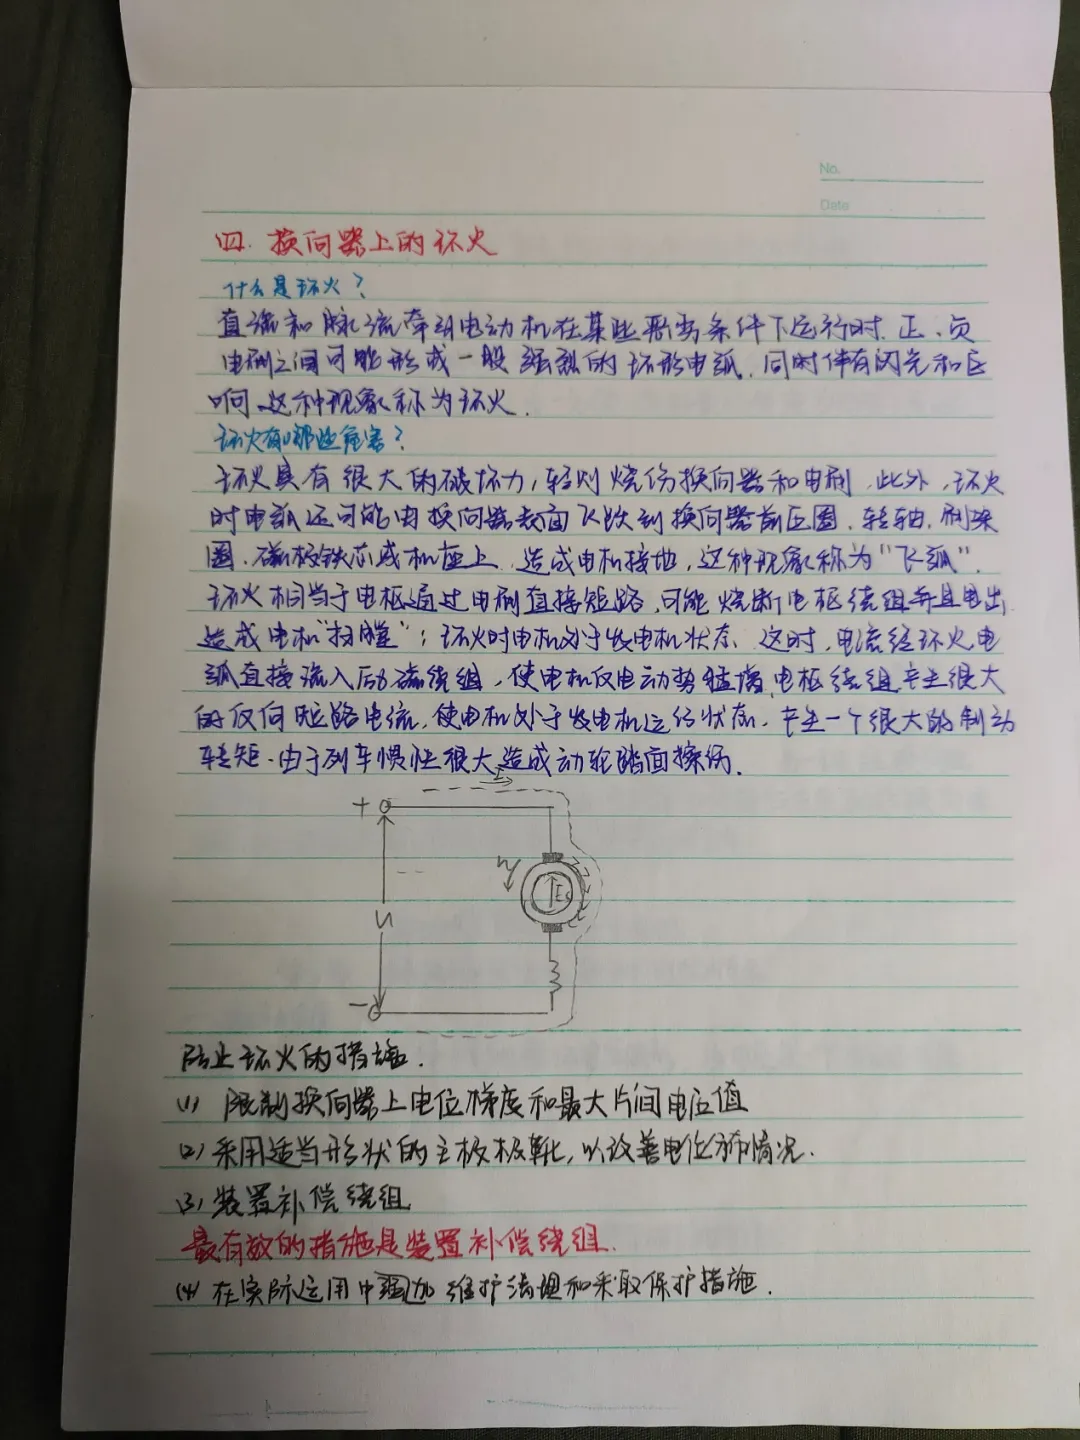 No.
Date
四. 换向器上的环火
什么是环火?
直流和脉流牵引电动机在某些恶劣条件下运行时.正、负
电刷之间可能形成一股强烈的环形电弧.同时伴有闪光和巨
响.这种现象称为环火.
环火有哪些危害?
环火具有很大的破坏力,轻则烧伤换向器和电刷.此外,环火
时电弧还可能由换向器表面飞跃到换向器前压圈.转轴.刷架
圈.磁极铁芯或机座上.造成电机接地,这种现象称为“飞弧”.
环火相当于电枢通过电刷直接短路,可能烧断电枢绕组并且甩出
造成电机“扫膛”;环火时电机处于发电机状态.这时,电流经环火电
弧直接流入励磁绕组,使电机反电动势猛增,电枢绕组产生很大
的反向短路电流.使电机处于发电机运行状态.产生一个很大的制动
转矩.由于列车惯性很大,造成动轮踏面擦伤.
I
+
n
Es
U
-
防止环火的措施.
(1) 限制换向器上电位梯度和最大片间电压值
(2) 采用适当形状的主极极靴,以改善电位分布情况.
(3) 装置补偿绕组
最有效的措施是装置补偿绕组.
(4) 在实际运用中强加维护清理和采取保护措施.